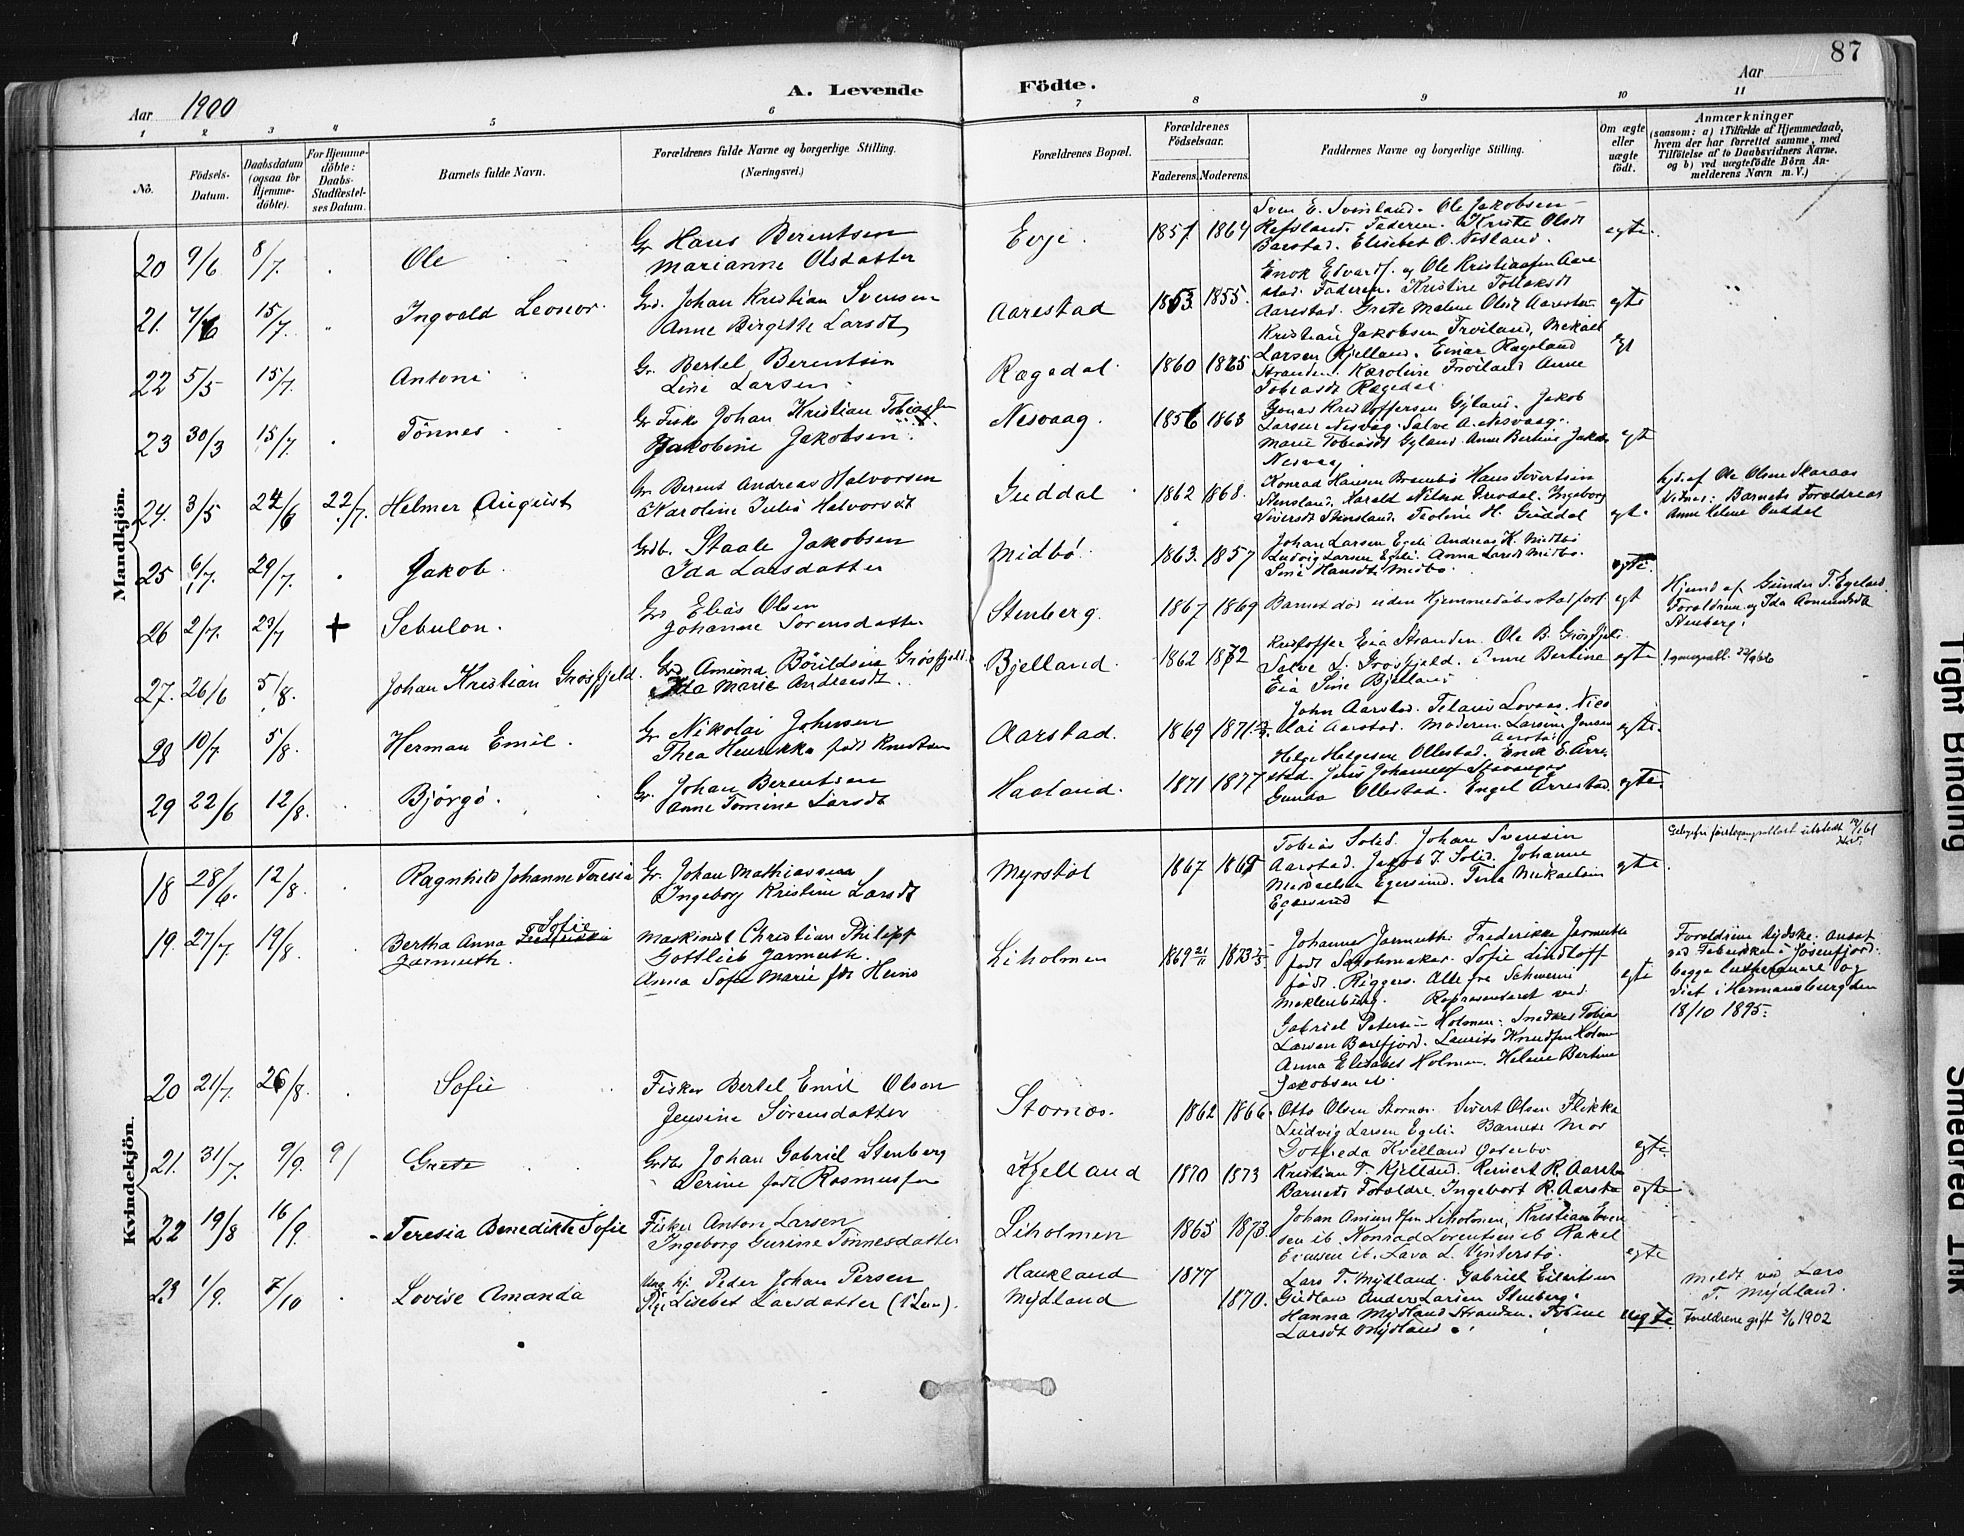 87
A. Levende Födte.
Aar 1900
Aar
1 2 3 4 5 6 7 8 9 10 11
No.
Födsels-Datum.
Daabsdatum (ogsaa for Hjemmedöbte).
For Hjemmedöbte: Daabs-Stadfæstelses Datum.
Barnets fulde Navn.
Forældrenes fulde Navne og borgerlige Stilling.
(Næringsvei.)
Forældrenes Bopæl.
Forældrenes Födselsaar.
Faderens. Moderens.
Faddernes Navne og borgerlige Stilling.
Om ægte eller uægte födt.
Anmærkninger
(saasom: a) i Tilfælde af Hjemmedaab, hvem der har forrettet samme, med Tilföielse af to Daabsvidners Navne, og b) ved uægtefödte Börn Anmelderens Navn m. V.)
Mandkjön.
20 9/6 8/7 Ole
Gr Hans Berentsen
Marianne Olsdatter
Evje. 1857 1864
Sven E. Svinland. Ole Jakobsen
Refsland. Faderen. Kriste Olsdt
Barstad. Elisebet O. Nesland.
egte.
21. 15/7 Ingvald Leonor.
Johan Kristian Svensen
Anne Birgitte Larsdt
Aarestad 1853. 1855.
Enok Edvards. og Ole Kristiansen Aarestad. Faderen. Kristine
Aarestad. Grete Malene Olsdt Aarestad
egte
22 5/5 15/7. Antoni
Gr. Bertel Berentsen
Line Larsen
Rægedal. 1860 1865
Kristian Jakobsen Fröiland, Mikael
Larsen Kjelland. Einar Rægeland
Stranden. Karoline Fröiland Anne
Tobiasdt Rægedal.
egt
23 30/3 15/7. Tönnes
Gr Fisk. Johan Kristian Tobiassen
Jakobine Jakobsen
Nesvaag. 1856 1863
Jonas Kristoffersen Gyland. Jakob
Larsen Nesvag. Salve A. Nesvaag.
Marie Tobiasdt Gyland. Anne Bertine Jakobs
Nesvaag
egt
24. 3/5 24/6 22/7. Helmer August
Gr. Berent Andreas Halvorsen
Karoline Julie Halvorsdt
Guddal 1862 1868.
Konrad Hansen Brambö Hans Sivertsen
Stensland. Harald Nilsen Guddal. Ingeborg
Siversdt Stensland. Teoline H. Guddal
egt.
hjd. af Ole Olsen Skaraas
Vidner: Barnets Foreldre
Anne Helene Guddal
25 6/7. 29/7. Jakob.
Grdb. Staale Jakobsen
Ida Larsdatter
Midbö. 1863. 1857
Johan Larsen Egeli Andreas K. Midbö
Ludvig Larsen Egeli. Anna Larsdt Midbö.
Sine Hansdt Midbö.
egte.
26 2/7. 29/7 + Sebulon.
Gr Elias Olsen
Johanne Sørensdatter
Stenberg. 1867 1869
Barnet död uden Hjemmedöbsstadfæst
egt
Hjemd af. Gunder T. Egeland
Foreldrene og Ida
Stenberg.
27. 26/6 5/8. Johan Kristian Grøsfjeld.
Amund Böruldsen Grøsfjeld.
Ida Marie Andreasdt.
Bjelland. 1862 1872
Kristoffer Eia Stranden. Ole B. Grøsfjeld.
Salve L. Grøsfjeld. Anne Bertine
Eia Sine Bjelland
egte
28 10/7. 5/8. Herman Emil.
Gr Nikolai Johnsen
Thea Henrikka født Knutsen
Aarstad. 1869 1871
John Aarstad. Lovaas. Nicolai Aarstad. Moderen. Larsine Jensen
Aarstad
egte.
29 22/6 12/8. Björgö.
Gr. Johan Berentsen
Anne Tomine Larsdt
Haaland. 1871 1877
Helge Helgesen Ollestad. Enok E. Arrestad. Stavanger
Gunda Ollestad. Engel Arrestad.
egte.
Kvindekjön.
18 28/6. 12/8. Ragnhild Johanne Teresia
Gr. Johan Mathiassen
Ingeborg Kristine Larsdt
Myrstöl 1867
Tobias Solid. Johan Svensen
Aarstad. Jakob T. Solid. Johanne
Mikaelsen Egersund. Mikaelsen
Egersund
egte.
19. 27/7 19/8. Bertha Anna Sofie
Jarmuth.
Maskinist Christian Philipp
Gottlieb Jarmuth.
Anna Sofie Marie fdt Heins
Liholmen 1869 21/11 1873
Johanna Jarmuth. Frederikke Jarmuth
født. Sofie Lindloff
født Riggers. Alle fra Schwerin
Meklenburg. Representeret ved
Gabriel Petersen Holmen. Snedker Tobias
Larsen Barefjord. Laurits Knudsen Holmen
Anna Elisabet Holmen. Helene Bertine
Jakobsen
egte
Foreldrene tydske. ansat
ved Fabrikken i Jøsenfjord.
begge lutheranere og
viet i Hermansburg den
18/10 1895.
20 21/7. 26/8. Sofie
Fisker Bertel Emil Olsen
Jensine Sørensdatter
Stornes. 1862 1866.
Otto Olsen Stornes. Sivert Olsen Flikka
Ludvig Larsen Egeli. Barnets Mor
Kvelland
egte
21. 31/7. 9/9. 9/ Grete
Grdbr Johan Gabriel Stenberg
Serine født Rasmussen
Kjelland 1870 1873
Kristian T. Kjelland. Reinert R. Aarstad
Barnets Foreldre. Ingebort R. Aarstad
egte
22 19/8 16/9. Teresia Benedikte Sofie
Fisker Anton Larsen
Ingeborg Gurine Tönnesdatter
Liholmen 1865 1873.
Johan Amundsen Liholmen, Kristian Evensen ib. Konrad Lorentsen ib Rakel
ib. Lava L. Vinterstö.
egte
23 1/9. 7/10 Lovise Amanda
Ung kj. Peder Johan Persen
Pige Lisebet Larsdatter
Haukland 1877
Mydland 1870.
Lars T. Mydland. Gabriel Eilertsen
Gudlan Ander Larsen Stenberg.
Hanna Mydland Stranden. Tobine
Larsdt Mydland
uegte.
Meldt ved Lars
T. Mydland.
Foreldrene gift 2/6 1902
Tight Binding
Smeared Ink